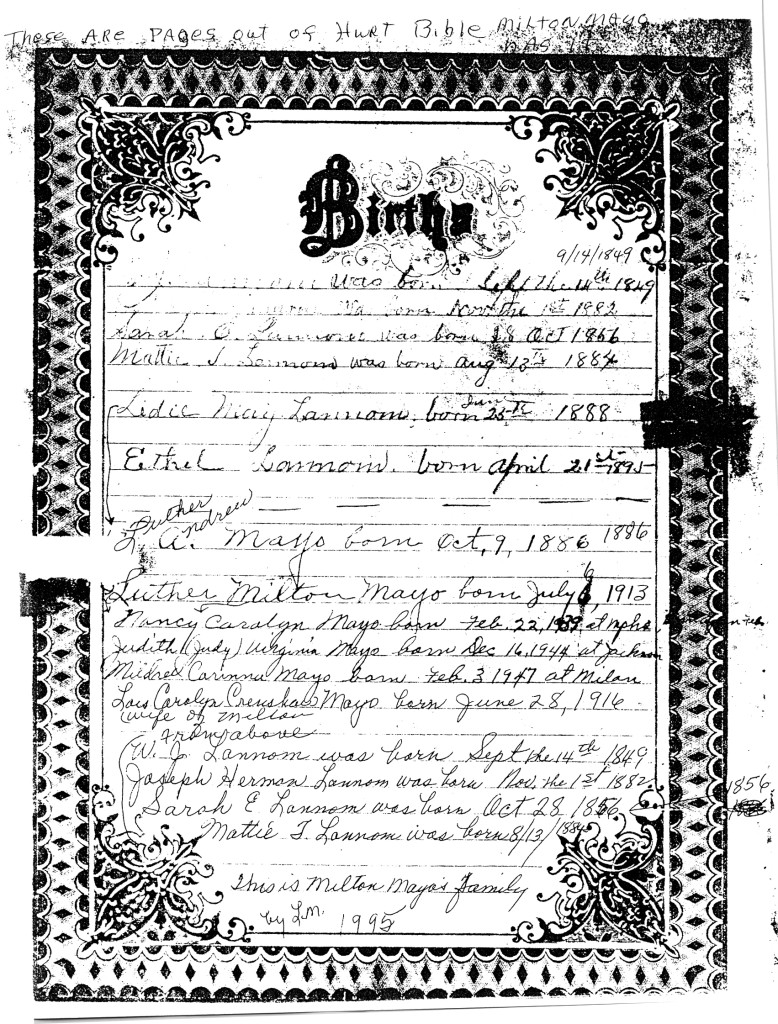 These ARE PAGES out of Hurt Bible Milton Mayo
has it
Births
9/14/1849
was born Sept the 14th 1849
born Nov the 1st 1882
Sarah E. Lannom was born 28 Oct 1856
Mattie J. Lannom was born aug 13th 1884
Ledie May Lannom. born Jun 25th 1888
Ethel Lannom. born april 21st 1895
Luther
Andrew
L. A. Mayo born Oct, 9, 1886 1886
Luther Milton Mayo born July 6, 1913
Nancy Carolyn Mayo born Feb. 22, 1939 at mphs,
Judith (Judy) Virginia Mayo born Dec 16, 1944 at Jackson
Mildred Corinna Mayo born Feb. 3 1947 at Milan
Lois Carolyn Crenshaw Mayo born June 28, 1916
(wife of Milton
from above
W. J. Lannom was born Sept the 14th 1849
Joseph Herman Lannom was born Nov. the 1st 1882
Sarah E Lannom was born Oct 28 1856 1856
Mattie J. Lannom was born 8/13/1884
This is Milton Mayo's Family
by L.M. 1995